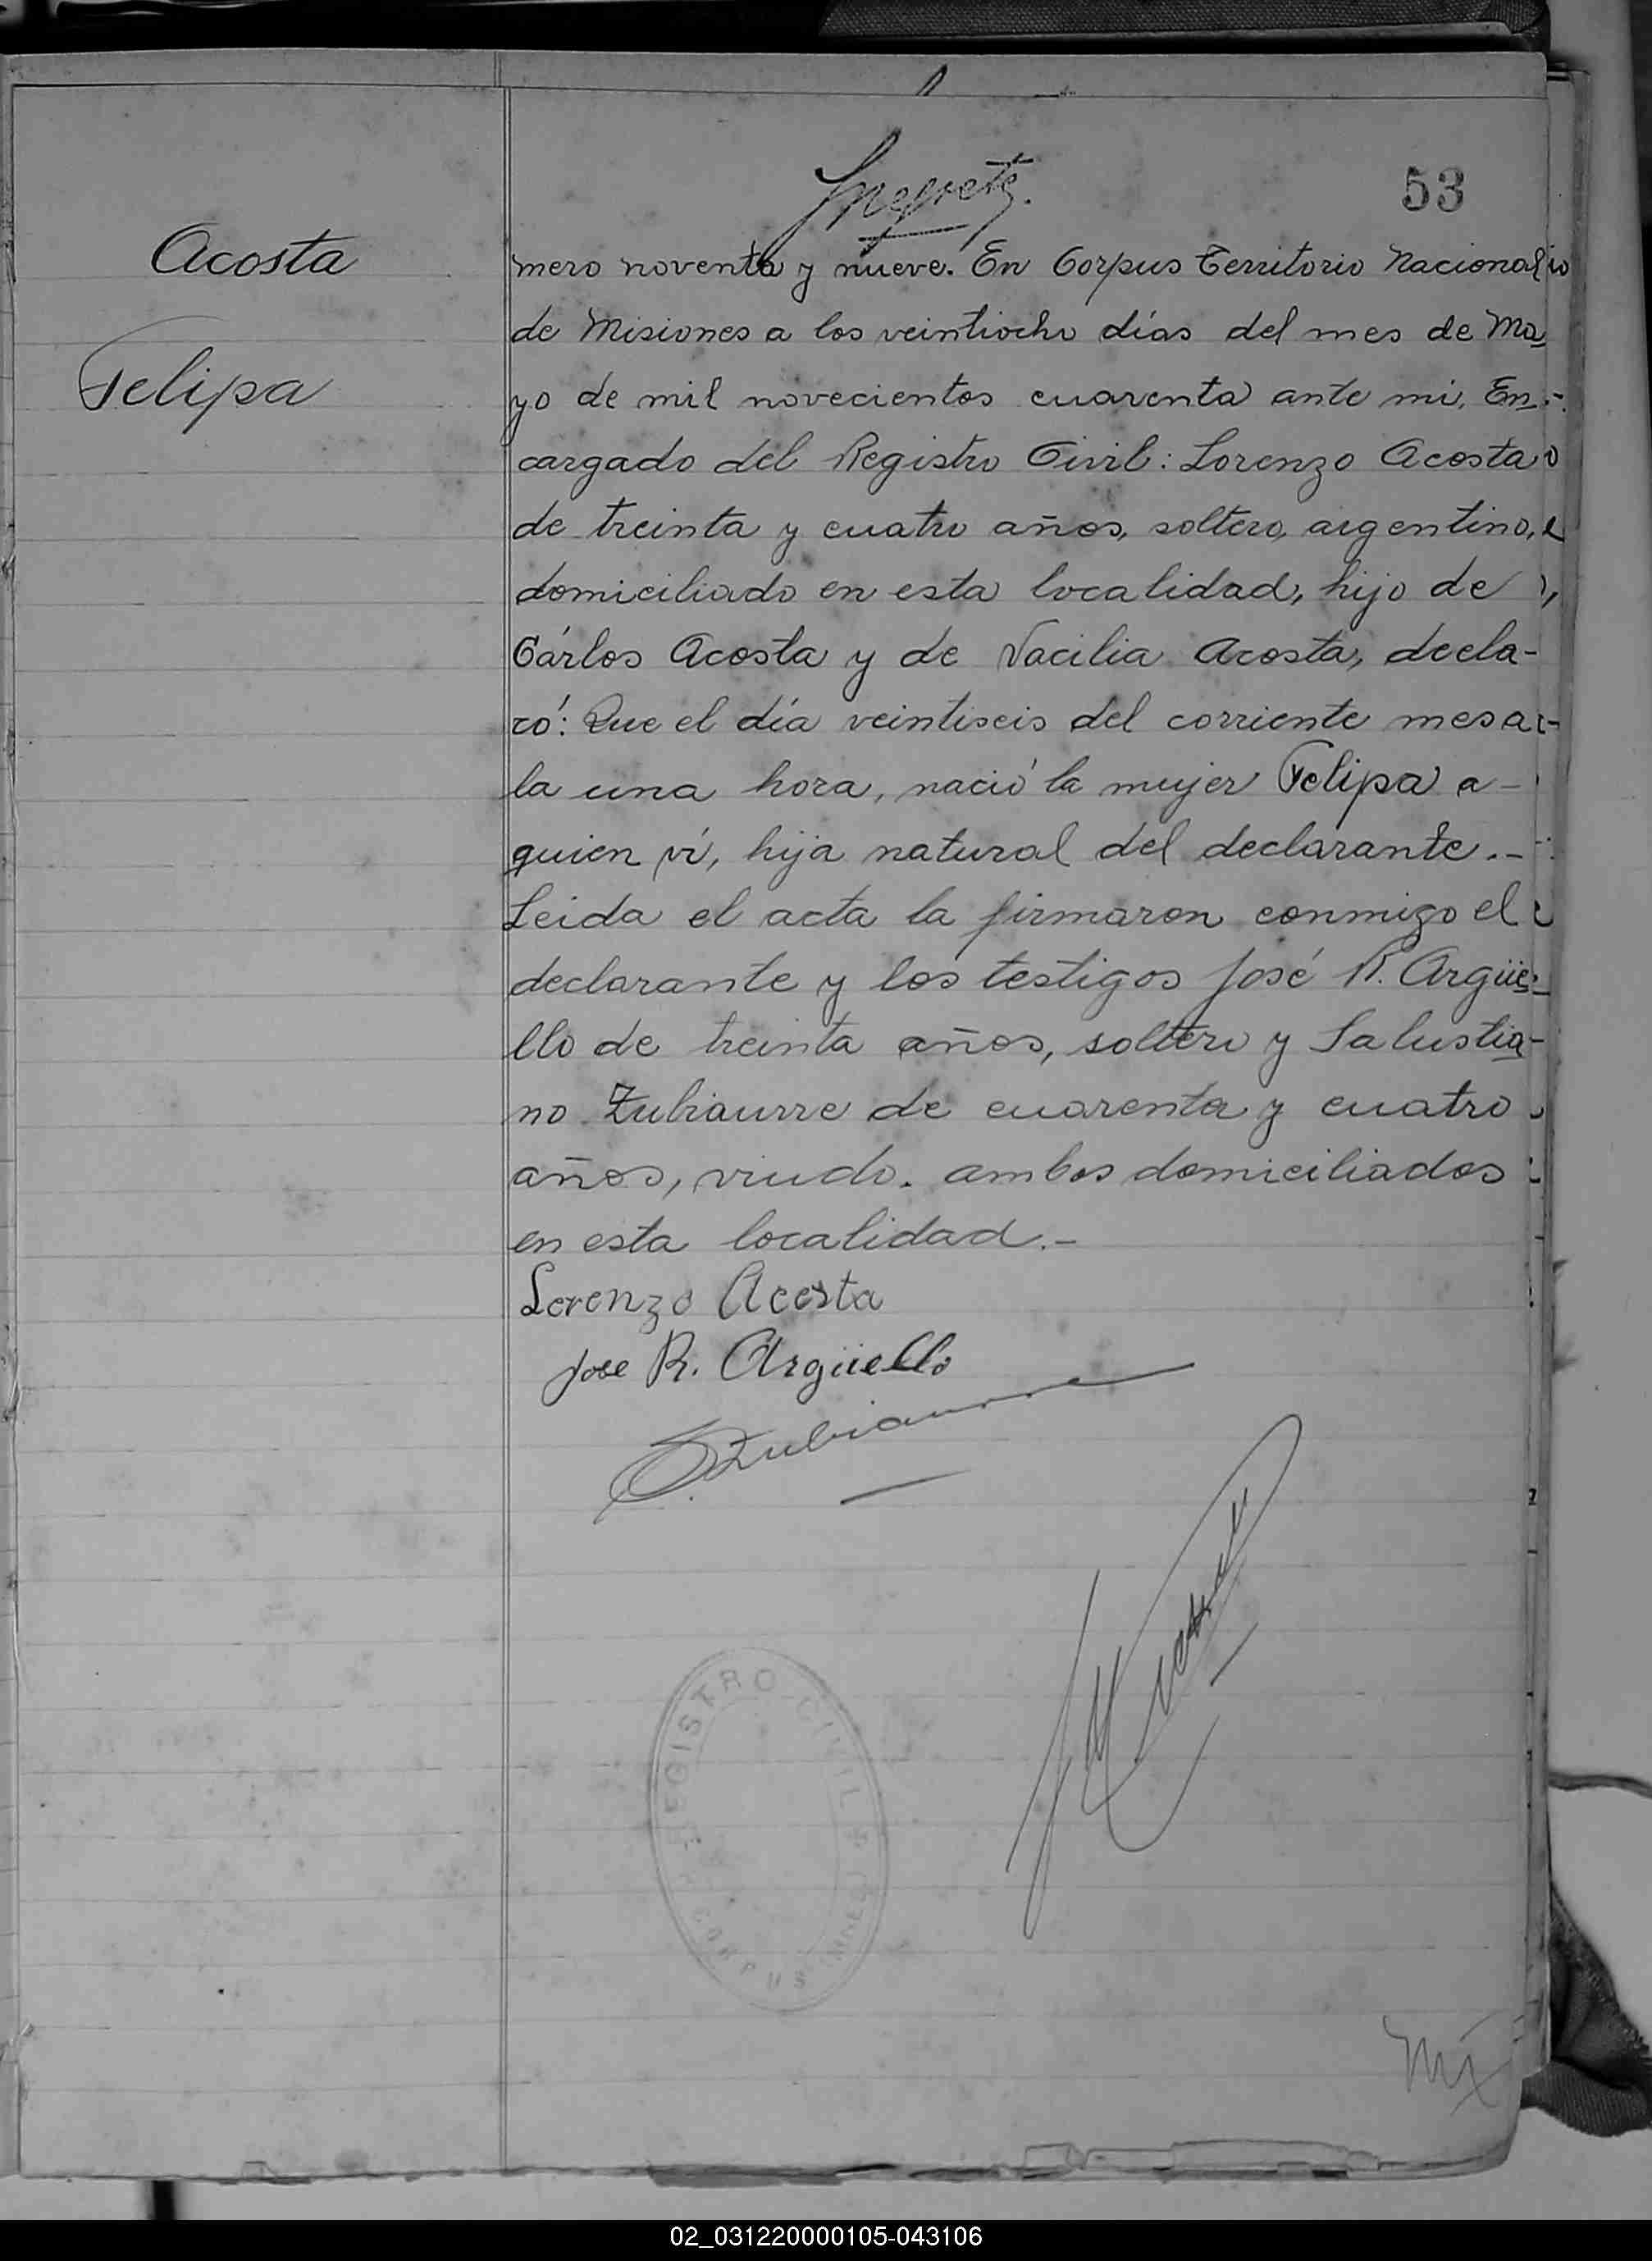 53
Acosta
Felipa
mero noventa y nueve. En Corpus Territorio Nacional
de Misiones a los veintiocho días del mes de Ma
yo de mil novecientos cuarenta ante mi, En
cargado del Registro Civil: Lorenzo Acosta
de treinta y cuatro años, soltero, argentino,
domiciliado en esta localidad, hijo de
Cárlos Acosta y de Vacilia Acosta, decla-
ró: Que el día veintiseis del corriente mes a
la una hora, nació la mujer Felipa a-
quien ví, hija natural del declarante.-
Leida el acta la firmaron conmigo el
declarante y los testigos José R. Argüe
llo de treinta años, soltero y Salustia
no Zubiaurre de cuarenta y cuatro
años, viudo. ambos domiciliados
en esta localidad.-
Lorenzo Acosta
Jose R. Argüello
S. Zubiaurre
REGISTRO CIVIL
CORPUS
02_031220000105-043106